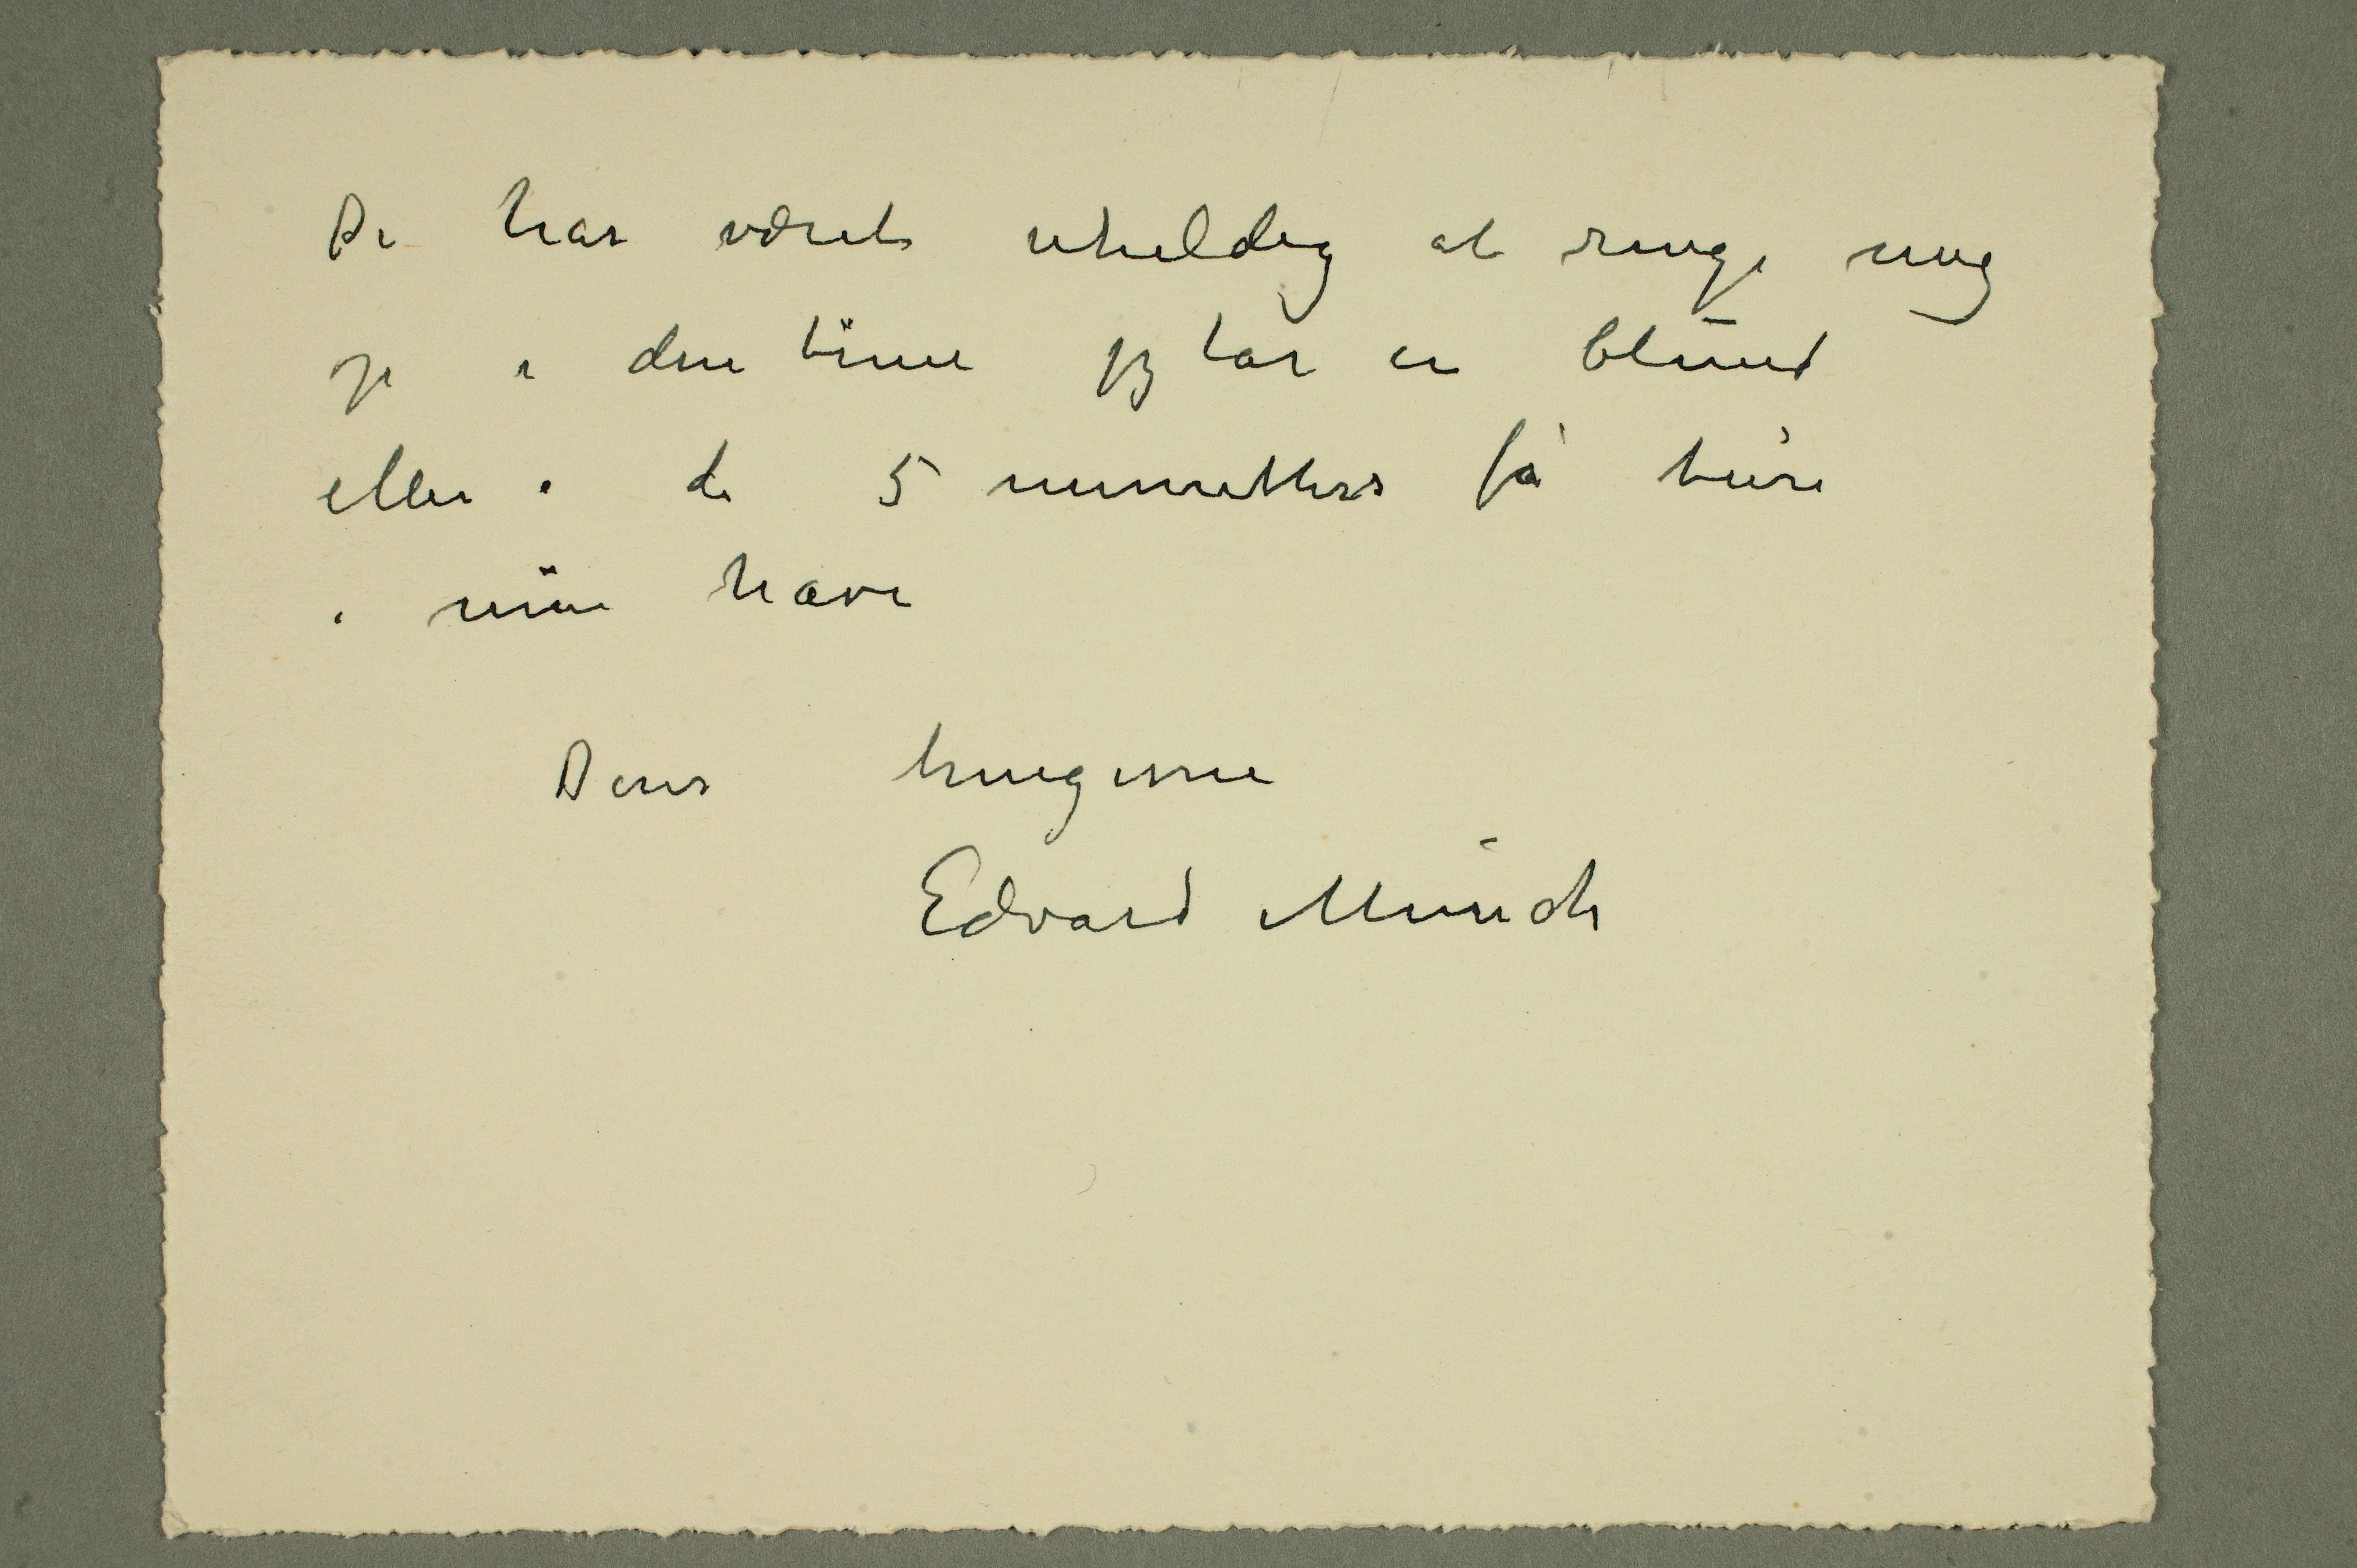 De har været uheldig at ringe mig
op i den time jeg tar en blund
eller i de 5 minutters få ture
i min have
Deres hengivne
Edvard Munch